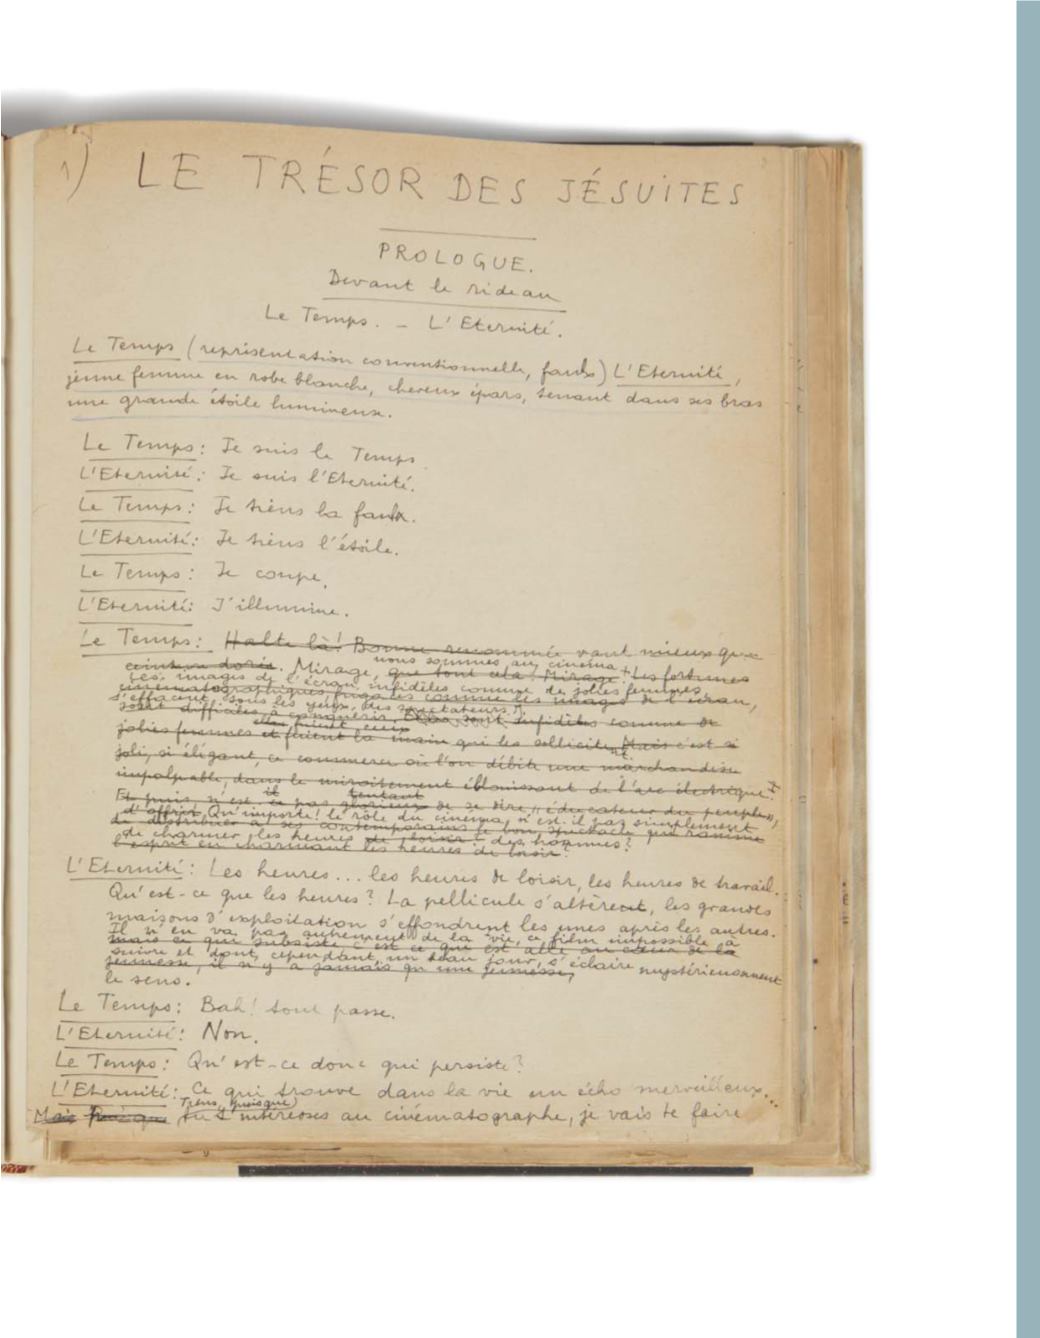 1) LE TRÉSOR DES JÉSUITES
PROLOGUE.
Devant le rideau
Le Temps. – L'Eternité.
Le Temps (représentation conventionnelle, faulx) L'Eternité,
jeune femme en robe blanche, cheveux épars, tenant dans ses bras
une grande étoile lumineuse.
Le Temps: Je suis le Temps.
L'Eternité: Je suis l'Eternité.
Le Temps: Je tiens la faulx.
L'Eternité: Je tiens l'étoile.
Le Temps: Je coupe.
L'Eternité: J'illumine.
Le Temps: Halte là! Bonne renommée vaut mieux que
nous sommes au cinéma
ceinture dorée. Mirage, que tout cela! Mirage! Les fortunes
Les images de l'écran, infidèles comme de jolies femmes,
cinématographiques fugaces comme les images de l'écran,
s'effacent sous les yeux des spectateurs.
sont difficiles à conquérir. Elles sont infidèles comme de
elles fuient ceux
jolies femmes et fuient la main qui les sollicite. Mais c'est si
joli, si élégant, ce commerce où l'on débite une marchandise
impalpable, dans le miroitement éblouissant de l'arc électrique!
il tentant
Et puis, n'est-ce pas glorieux de se dire, éducateur du peuple,
d'offrir Qu'importe! le rôle du cinéma, n'est-il pas simplement
de distribuer à ses contemporains le bon spectacle qui ranime
de charmer les heures de loisir des hommes?
l'esprit en charmant les heures de loisir?
L'Eternité: Les heures... les heures de loisir, les heures de travail.
Qu'est-ce que les heures? La pellicule s'altère, les grandes
maisons d'exploitation s'effondrent les unes après les autres.
Il n'en va pas autrement de la vie, ce film impossible à
mais ce qui subsiste c'est ce qui est allé au cœur de la
suivre et dont, cependant, un beau jour, s'éclaire mystérieusement
jeunesse, il n'y a jamais qu'une jeunesse,
le sens.
Le Temps: Bah! tout passe.
L'Eternité: Non.
Le Temps: Qu'est-ce donc qui persiste?
L'Eternité: Ce qui trouve dans la vie un écho merveilleux...
Tiens, puisque
Mais puisque tu t'intéresses au cinématographe, je vais te faire